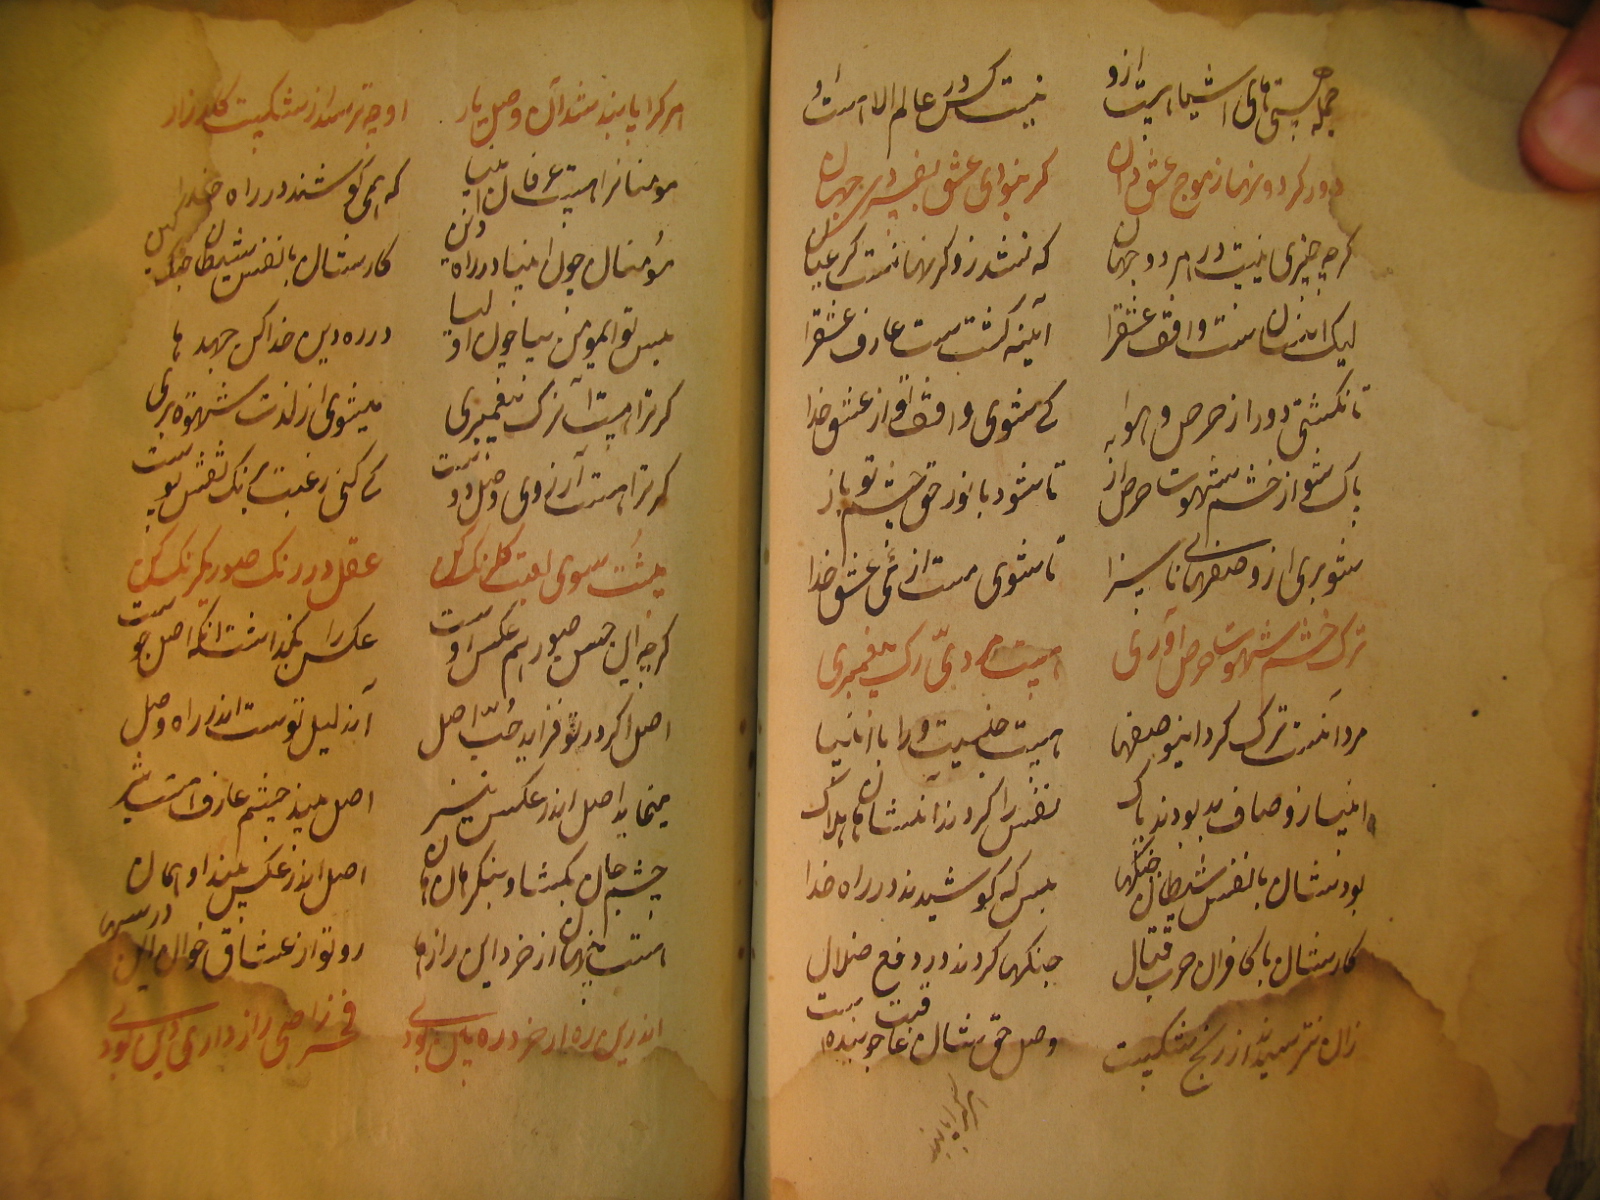 جمله هستی‌های اشیا هست ازو نیست کس در عالم الا هست او
دور کردونها ز موج عشق دان کر نبودی عشق بفسردی جهان
کرچه چیزی نیست در هر دو جهان که نشد زو کر نهانست کر عیان
لیک انسان است واقف عشقرا آینه کشتست عارف عشقرا
تا نکشتی دور از حرص و هوا کی شوی واقف تو از عشق خدا
پاک شو از خشم شهوت حرص از تا شود با نور حق چشم تو باز
شو بری از وصفهای ناسزا تا شوی مست از می عشق خدا
ترک خشم شهوت حرص آوری هست مردی رک پیغمبری
مرد آنست ترک کرد اینوصفها هست جنسیت ورا با انبیا
انبیا ز اوصاف بد بودند پاک نفس را کردند آنشاهان هلاک
بودشان با نفس شیطان جنکها بس که کوشیدند در راه خدا
کارشان با کافران حرب قتال جنکها کردند در دفع ضلال
زان نترسیدند از رنج شکست وصل حق شان عاقبت
هر کرا پابند
هر کرا پابند شد آن وصل یار او چه ترسد از شکست کارزار
مومنانرا هست عرفان انبیا که همی کوشند در راه خدا
مومنان چون انبیا در راه دین کارشان با نفس شیطان جنک
بس تو ای مومن بیا چون اولیا در ره دین خدا کن جهدها
کر ترا هست آن رک پیغمبری میشوی از لذت شهوت بری
کر ترا هست آرزوی وصل دوست کی کنی رغبت برنک نقش پوست
پشت سوی لعبت کلرنک کن عقل در رنک صور یکرنک کن
کرچه این جنس صور هم عکس اوست عکس را بکذاشت آنکه اصل جوست
اصل اکر در تو فزاید حب اصل آن دلیل توست اندر راه وصل
مینماید اصل اندر عکس نیز اصل بیند چشم عارف
چشم جان بکشا و بنکر آن اصل اندر عکس بیند او همان
هست پنهان از خرد این رازها رو تو از عشاق خوان این درسها
اندرین ره ار خرد ره بین بدی فخر رازی رازدار دین بدی